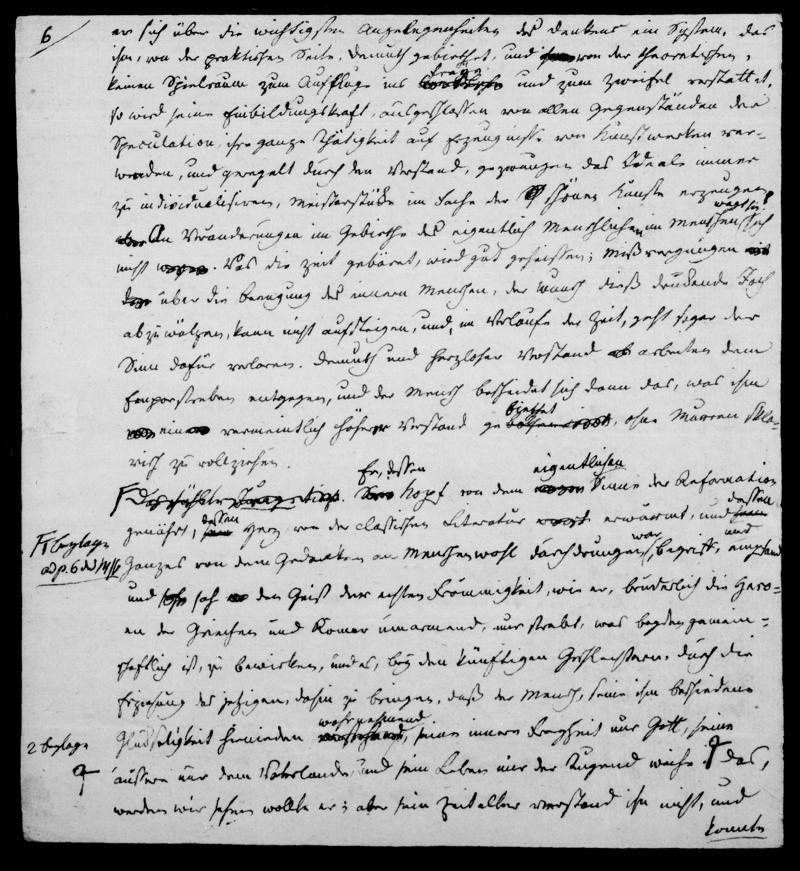 6
er sich über die wichtigsten Angelegenheiten des Denkens ein System, das
ihm, von der praktischen Seite, Demuth gebiethet, und von der theoretischen,
keinen Spielraum zum Auffluge ins freye und zum Zweifel verstattet,
so wird seine Einbildungskraft, ausgeschlossen von allen Gegenständen der
Speculation, ihre ganze Thätigkeit auf Erzeugnisse von Kunstwerken ver-
wenden, und geregelt durch den Verstand, gezwungen das Ideale immer
zu individualisiren, Meisterstücke im Fache der schönen Künste erzeugen,
An Veränderungen im Gebiethe des eigentlich Menschlichen im Menschen wagt sie sich
nicht. Was die Zeit gebäret, wird gut geheissen; Mißvergnügen
über die Beengung des innern Menschen, der Wunsch dieß drückende Joch
abzuwälzen, kann nicht aufsteigen, und, im Verlaufe der Zeit, geht sogar der
Sinn dafür verloren. Demuth und herzloser Verstand arbeiten dem
Emporstreben entgegen, und der Mensch bescheidet sich dann das, was ihm
ein vermeintlich höherer Verstand gebiethet, ohne Murren skla-
visch zu vollziehen.
Er, dessen Kopf von dem eigentlichen Sinne der Reformation
genährt, dessen Herz von der classischen Literatur erwärmt, und dessen
Ganzes von dem Gedanken an Menschenwohl durchdrungen war, begriff, empfand
und sah den Geist der echten Frömmigkeit, wie er, brüderlich die Hero-
en der Griechen und Römer umarmend, nur strebt, was beyden gemein-
schaftlich ist, zu bewirken, und es, bey den künftigen Geschlechtern, durch die
Erziehung des jetzigen, dahin zu bringen, daß der Mensch, seine ihm beschiedene
Glückseligkeit hienieden wahrnehmend, seine innere Freyheit nur Gott, seine
äussere nur dem Vaterlande, und sein Leben nur der Tugend weihe. das,
werden wir sehen wollte er; aber sein Zeitalter verstand ihn nicht, und
konnte
beylage
ad p. 6
2 beylage